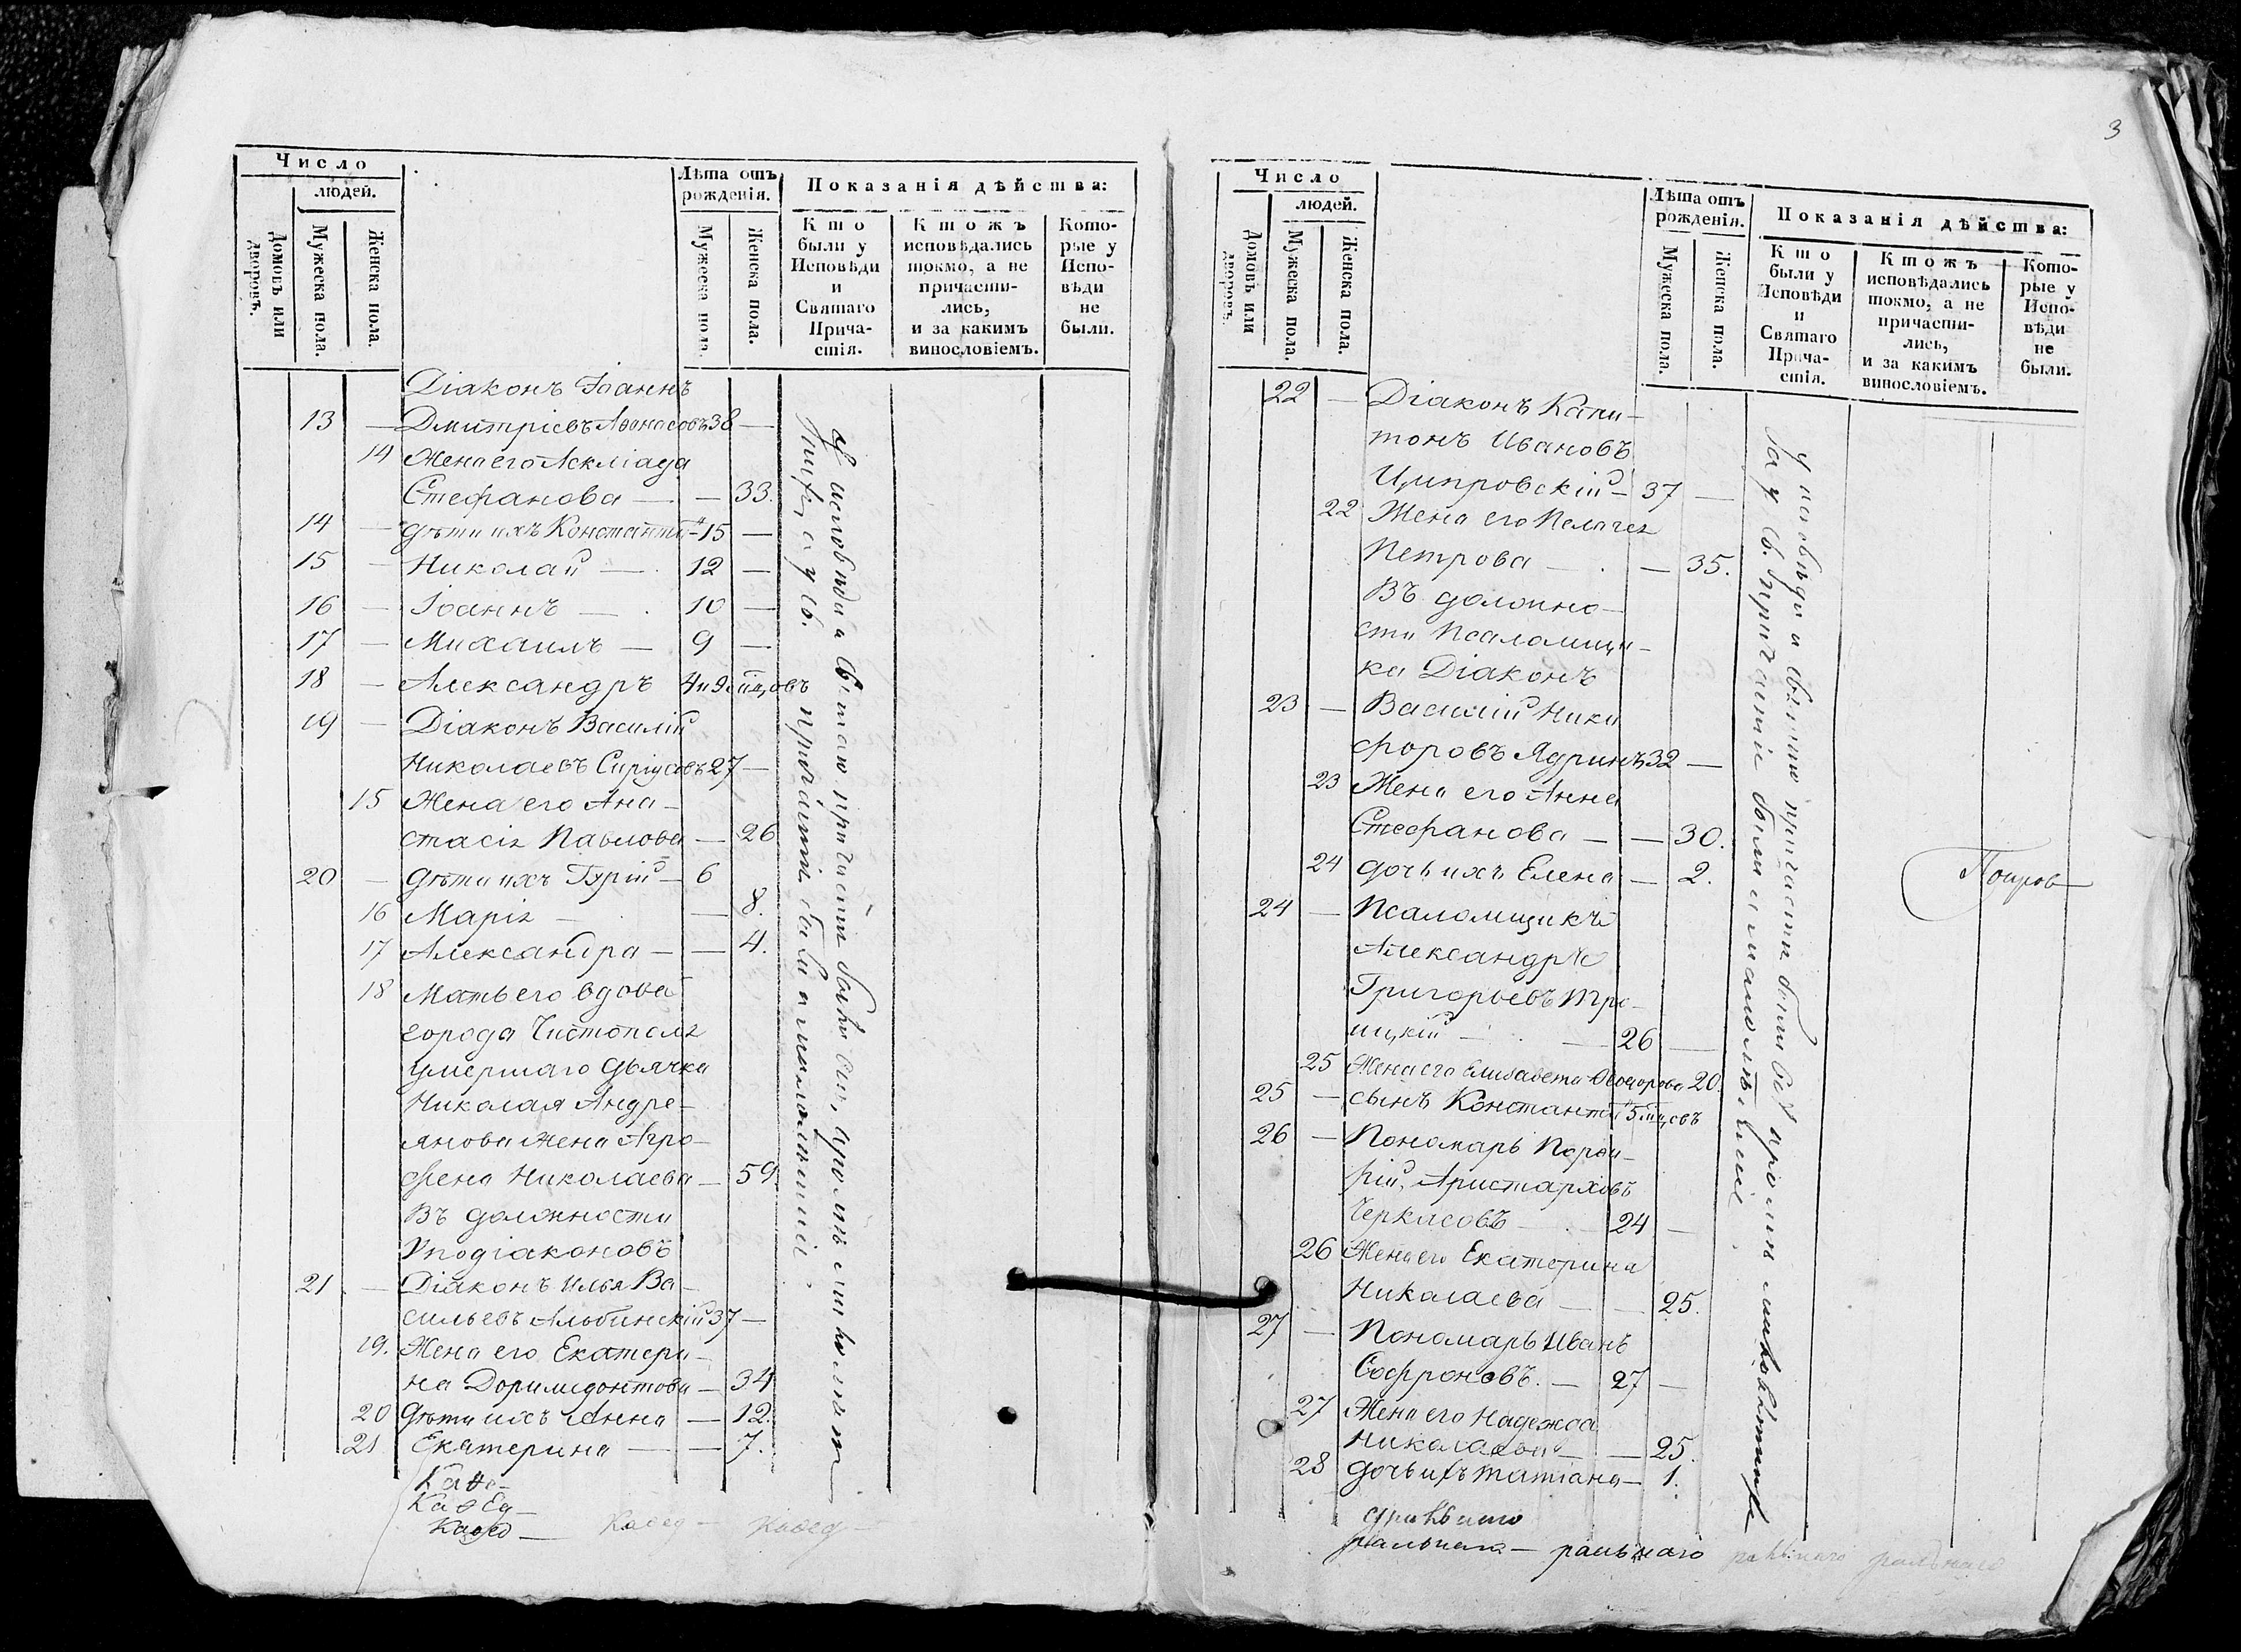 Число
людей.
Домовъ или дворовъ.
Мужеска пола.
Женска пола.
Лѣта отъ рожденія.
Мужеска пола.
Женска пола.
Показанія дѣйства:
Кто были у Исповѣди и Святаго Причастія.
Ктожъ исповѣдались токмо, а не причастились, и за какимъ винословіемъ.
Которые у Исповѣди не были.
Діаконъ Іоаннъ
13 — Дмитріевъ Аѳонасовъ 38 —
14 Жена его Асклiада
Стефанова — — 33.
14 — дѣти ихъ Константи 15 —
15 — Николай — 12 —
16 — Іоаннъ — 10 —
17 — Михаилъ — 9 —
18 — Александръ 4 и 9 мцовъ
19 — Діаконъ Василій
Николаевъ Сиріусовъ 27 —
15 Жена его Ана-
стасія Павлова — 26
20 — дѣти ихъ Гурій — 6
16 Марія — — 8.
17 Александра — — 4.
18 Мать его вдова
города Чистополя
умершаго дьячка
Николая Андре-
янова жена Агро-
фена Николаева — 59
Въ должности
Уподіаконовъ
21. — Діаконъ Илья Ва-
сильевъ Альбинскій 37 —
19. Жена его Екатери-
на Доримедонтова — 34
20 Дѣти ихъ Анна — 12.
21 Екатерина — — 7.
У исповѣди и Святаго причастія были вси, кромѣ
причастіи были и малолѣтніи.
Каѳе-
КаѳЕд-
Каѳед — Каѳед — Каѳед —
3
Число
людей.
Домовъ или дворовъ.
Мужеска пола.
Женска пола.
Лѣта отъ рожденія.
Мужеска пола.
Женска пола.
Показанія дѣйства:
Кто были у Исповѣди и Святаго Причастія.
Ктожъ исповѣдались токмо, а не причастились, и за какимъ винословіемъ.
Которые у Исповѣди не были.
22 — Діаконъ Капи-
тонъ Ивановъ
Ципровскій — 37 —
22 Жена его Пелагея
Петрова — — 35.
Въ должно-
сти Псаломщи-
ка Діаконъ
23 — Василій Ники
форовъ Ядринъ 32 —
23 Жена его Анна
Стефанова — — 30.
24 дочь ихъ Елена — 2.
24 — Псаломщикъ
Александръ
Григорьевъ Тро-
ицкій — — 26 —
25 Жена его Елисавета Ѳеодорова 20.
25 — сынъ Константи 5 мцовъ
26 — Пономарь Порфи-
рій Аристарховъ
Черкасовъ — 24 —
26 Жена его Екатерина
Николаева — — 25.
27 — Пономарь Иванъ
Софроновъ. — 27 —
27 Жена его Надежда
Николаева — — 25.
28 дочь ихъ Татіана — 1.
У исповѣди и святаго причастія были всѣ кромѣ
а у Св. причастіи были и малолѣтніи.
ральнаго — ральнаго ральнаго ральнаго